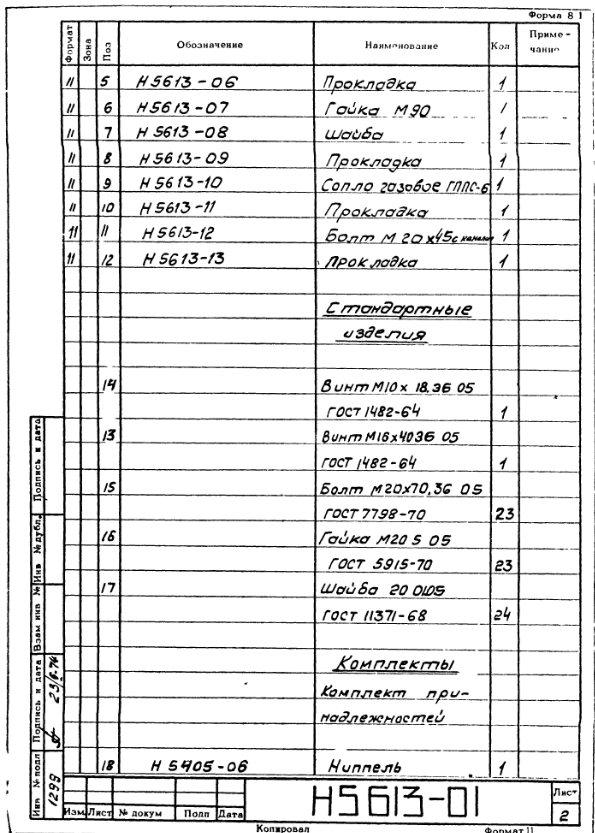 Форма 8 1
Формат Зона Поз Обозначение Наименование Кол Приме-
чание
11 5 Н5613-06 Прокладка 1
11 6 Н5613-07 Гайка М90 1
11 7 Н5613-08 Шайба 1
11 8 Н5613-09 Прокладка 1
11 9 Н5613-10 Сопло газовое ГППС-6 1
11 10 Н5613-11 Прокладка 1
11 11 Н5613-12 Болт М 20х45 с 1
11 12 Н5613-13 Прокладка 1
Стандартные
изделия
14 Винт М10х 18.36 05
ГОСТ 1482-64 1
13 Винт М16х4036 05
ГОСТ 1482-64 1
15 Болт М20х70,36 05
ГОСТ 7798-70 23
16 Гайка М20 5 05
ГОСТ 5915-70 23
17 Шайба 20 0105
ГОСТ 11371-68 24
Комплекты
Комплект при-
надлежностей
18 Н 5405-06 Ниппель 1
Подпись и дата
Инв №дубл.
Взам инв №
Подпись и дата
Инв №подл
1299
Изм Лист № докум Подп Дата
Н5613-01
Лист
2
Копировал Формат 11